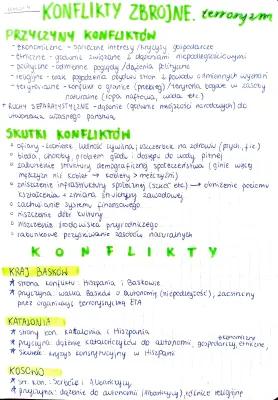 KONFLIKTY ZBROJNE. terroryzm
PRZYCZYNY KONFLIKTÓW
- ekonomiczne - sprzeczne interesy / kryzysy gospodarcze
- etniczne - głównie związane z dążeniami niepodległościowymi
- polityczne - odmienne poglądy / dążenia polityczne
- religijne - brak porozumienia dwóch stron z powodu odmiennych wyznań
- terytorialne - konflikty o granice (przebieg) / terytoria, bogate w zasoby
naturalne (ropa naftowa, woda etc.)
* RUCHY SEPARATYSTYCZNE - dążenie (głównie mniejszości narodowych) do
utworzenia własnego państwa
SKUTKI KONFLIKTÓW
ofiary - żołnierze, ludność cywilna; uszczerbek na zdrowiu (psych., fiz.)
bieda, choroby, problem głodu i dostępu do wody pitnej
zaburzenie struktury demograficznej społeczeństwa (ginie więcej
mężczyzn niż kobiet → kobiety > mężczyźni)
zniszczenie infrastruktury społecznej (szkoły etc.) → obniżenie poziomu
kształcenia + zmiana struktury zawodowej
zachwianie systemu finansowego
niszczenie dóbr kultury
niszczenie środowiska przyrodniczego
rabunkowe pozyskiwanie zasobów naturalnych
KONFLIKTY
KRAJ BASKÓW
strona konfliktu: Hiszpania i Baskowie
przyczyna: walka Basków o autonomię (niepodległość), zaostrzony
przez organizację terrorystyczną ETA
KATALONIA
strony kon. Katalonia i Hiszpania
przyczyna: dążenie Katalończyków do autonomii, gospodarczej, etniczne,
ekonomiczne
skutek: kryzys konstytucyjny w Hiszpanii
KOSOWO
str. kon.: Serbowie i Albańczycy
przyczyna: dążenie do autonomii (Albańczycy), różnice religijne